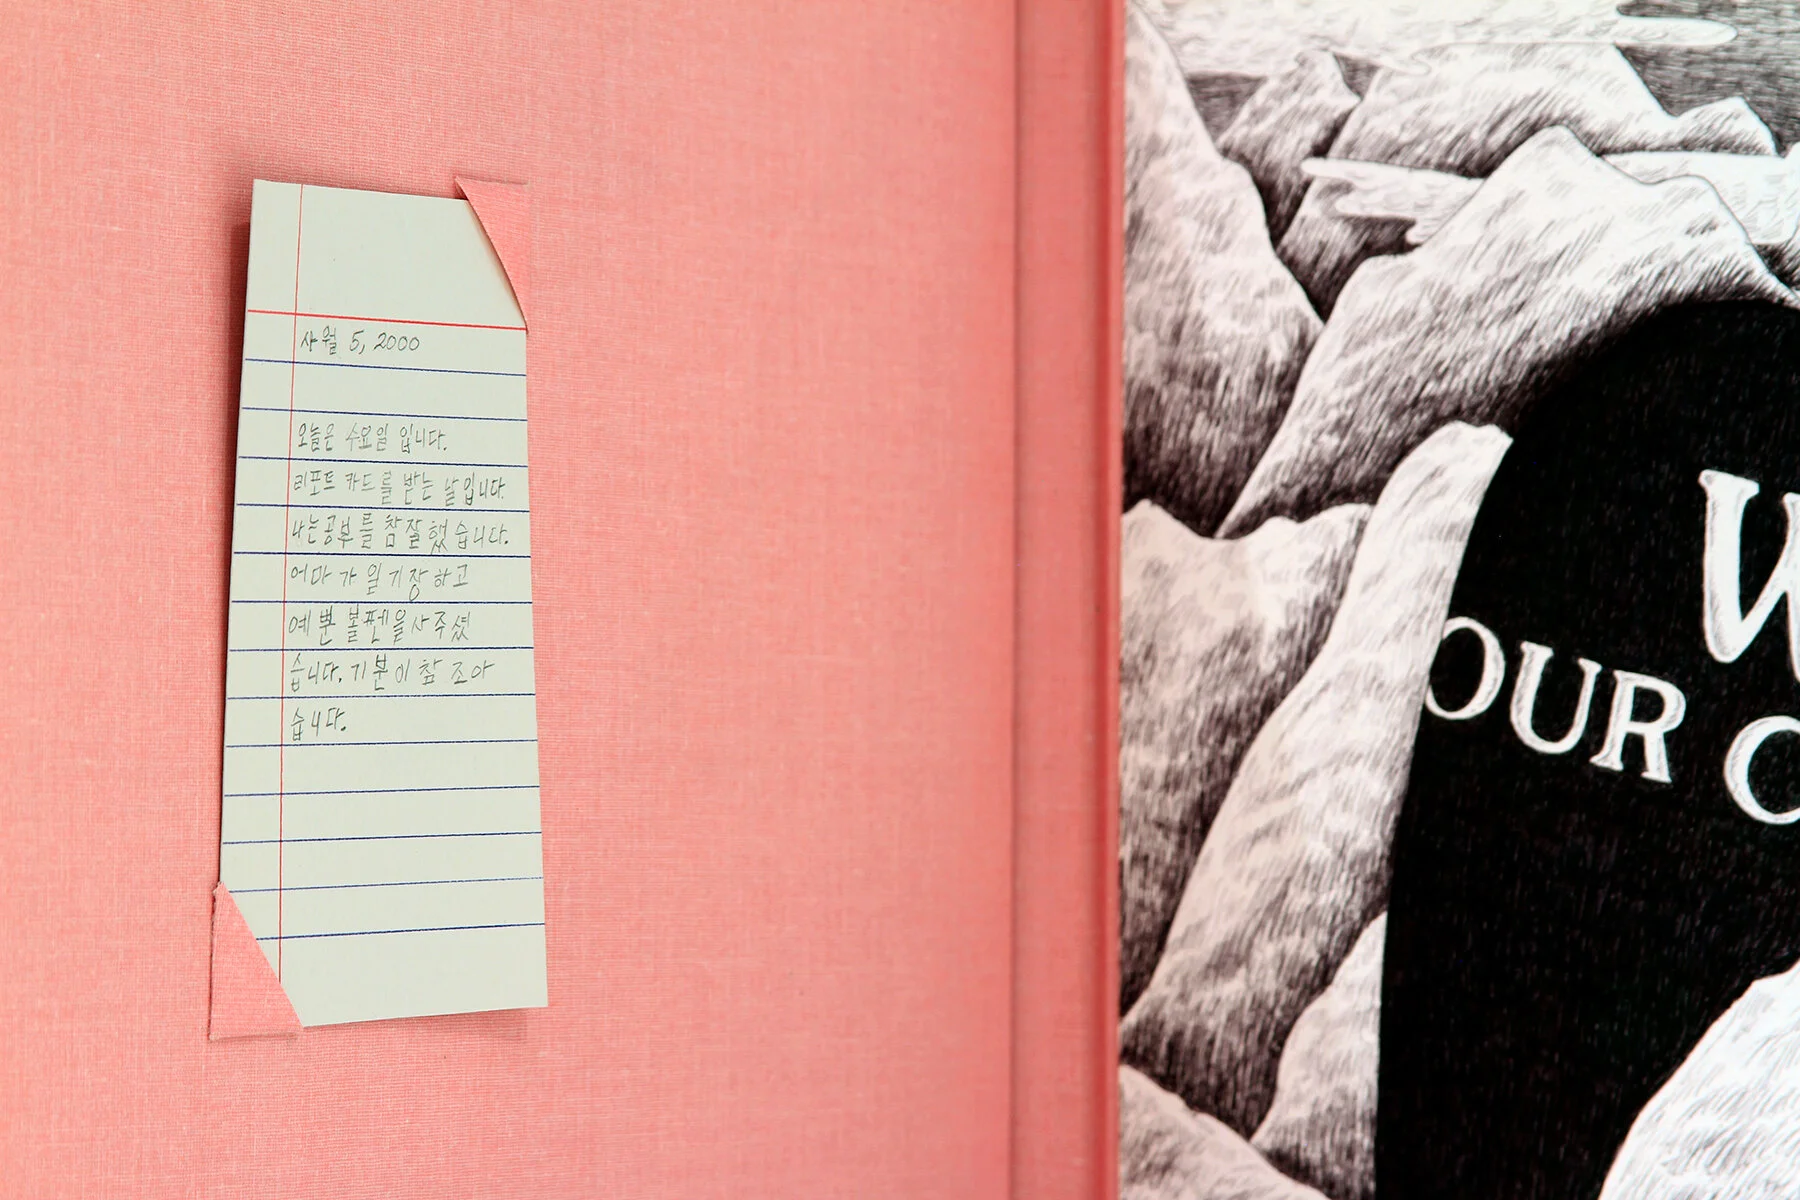 사월 5, 2000
오늘은 수요일 입니다.
리포트 카드를 받는 날입니다.
나는공부를 참잘했습니다.
어마가 일기장하고
예뿐 볼펜을사주셨
습니다. 기분이 참 조아
습니다.
W
OUR